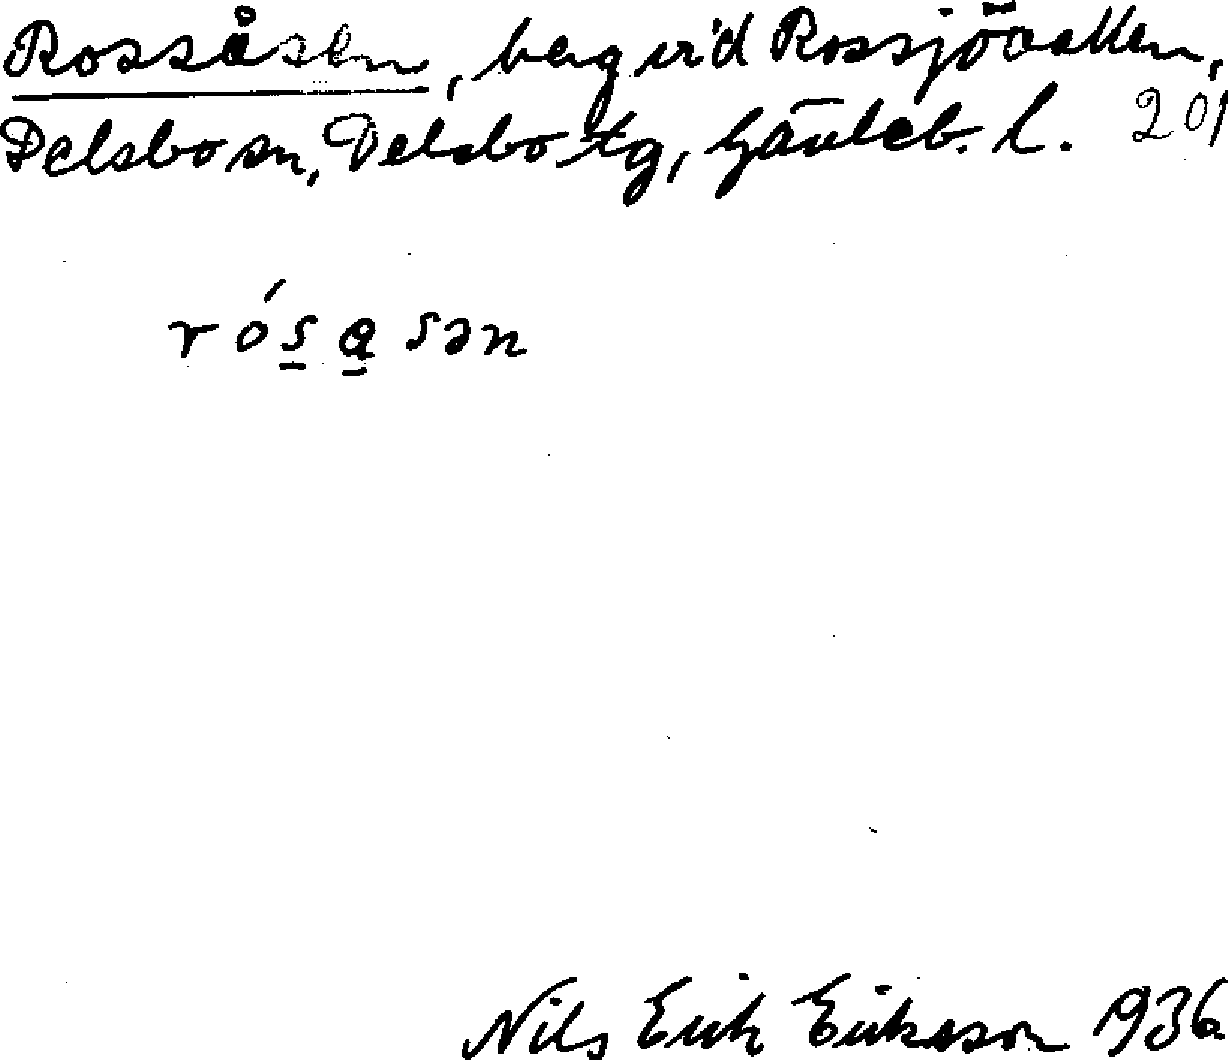 Rossåsen, berg vid Rossjövallen,
Delsbo sn, Delsbo tg, Gävleb. l. 201
rós̲a̲sən
Nils Erik Eriksson 1936